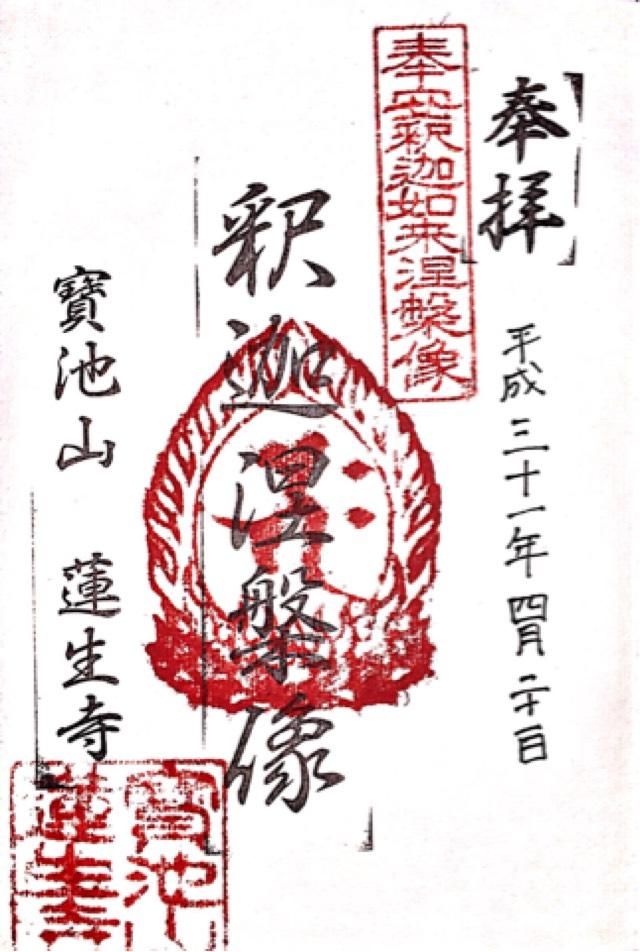 奉拝
平成三十一年四月二十日
奉安釈迦如来涅槃像
釈迦涅槃像
寶池山 蓮生寺
寶池
蓮生